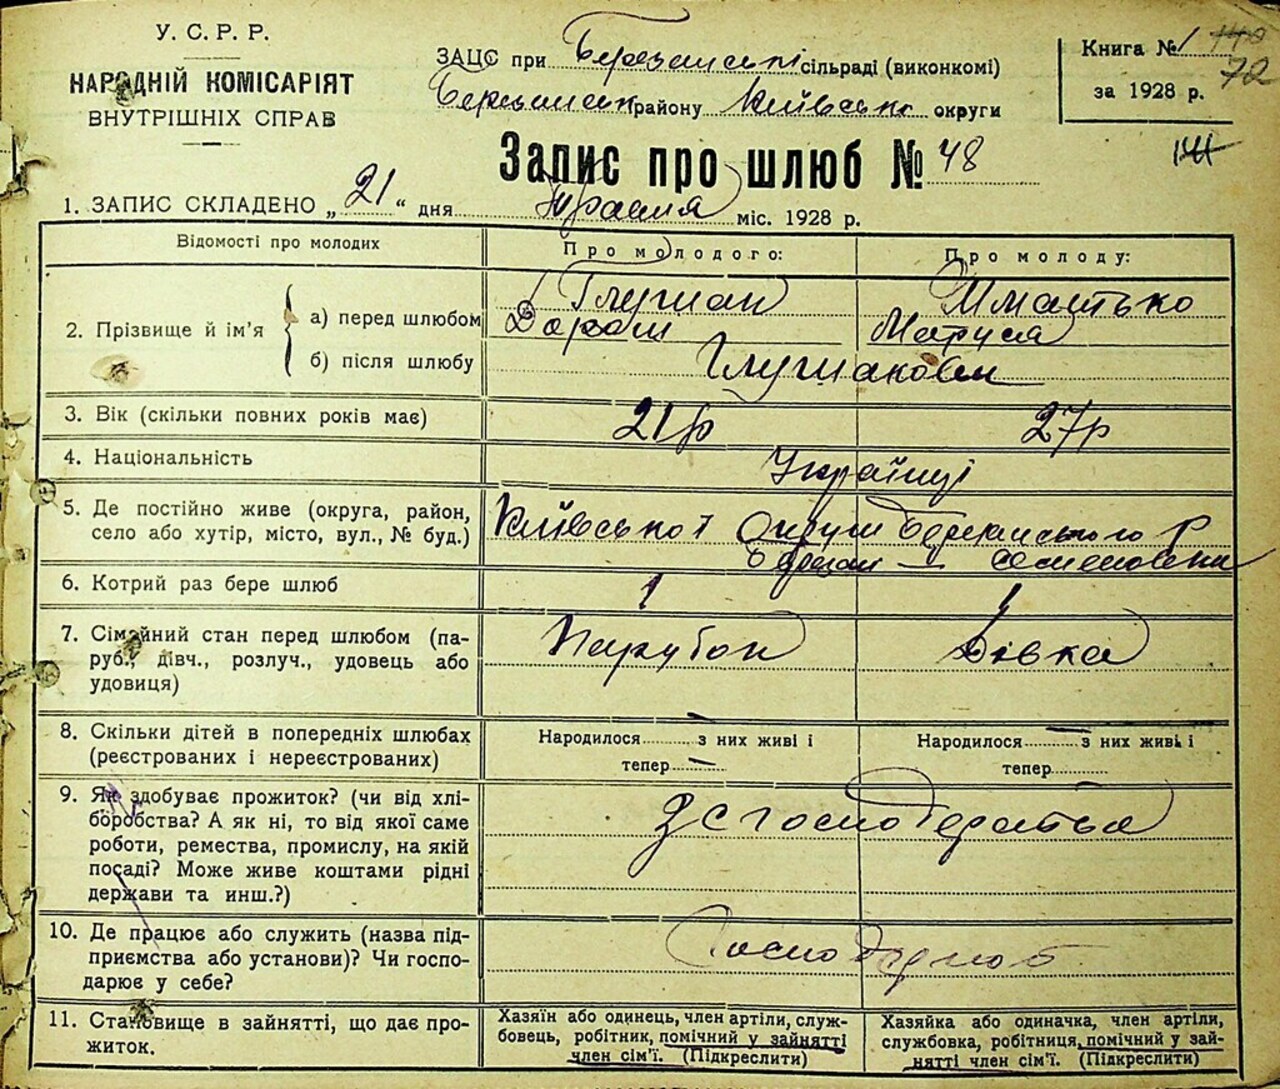 У. С. Р. Р.
НАРОДНІЙ КОМІСАРІЯТ
ВНУТРІШНІХ СПРАВ
ЗАЦС при Березанські сільраді (виконкомі)
Березанськ району Київсько округи
Книга № 1 140
72
за 1928 р.
141
Запис про шлюб № 48
1. ЗАПИС СКЛАДЕНО „ 21 “ дня Травня міс. 1928 р.
Відомості про молодих
Про молодого:
Про молоду:
2. Прізвище й ім'я
а) перед шлюбом
Маруся
б) після шлюбу
3. Вік (скільки повних років має)
21 р
27 р
4. Національність
Українці
5. Де постійно живе (округа, район,
село або хутір, місто, вул., № буд.)
Київської Округи Березанського Р
Березані — Семеновка
6. Котрий раз бере шлюб
1
1
7. Сімейний стан перед шлюбом (па-
руб., дівч., розлуч., удовець або
удовиця)
Парубок
Дівка
8. Скільки дітей в попередніх шлюбах
(реєстрованих і нереєстрованих)
Народилося — з них живі і
тепер —
Народилося — з них живі і
тепер
9. Як здобуває прожиток? (чи від хлі-
боробства? А як ні, то від якої саме
роботи, ремества, промислу, на якій
посаді? Може живе коштами рідні
держави та инш.?)
10. Де працює або служить (назва під-
приємства або установи)? Чи госпо-
дарює у себе?
11. Становище в зайнятті, що дає про-
житок.
Хазяїн або одинець, член артіли, служ-
бовець, робітник, помічний у зайнятті
член сім'ї. (Підкреслити)
Хазяйка або одиначка, член артіли,
службовка, робітниця, помічний у зай-
нятті член сім'ї. (Підкреслити)